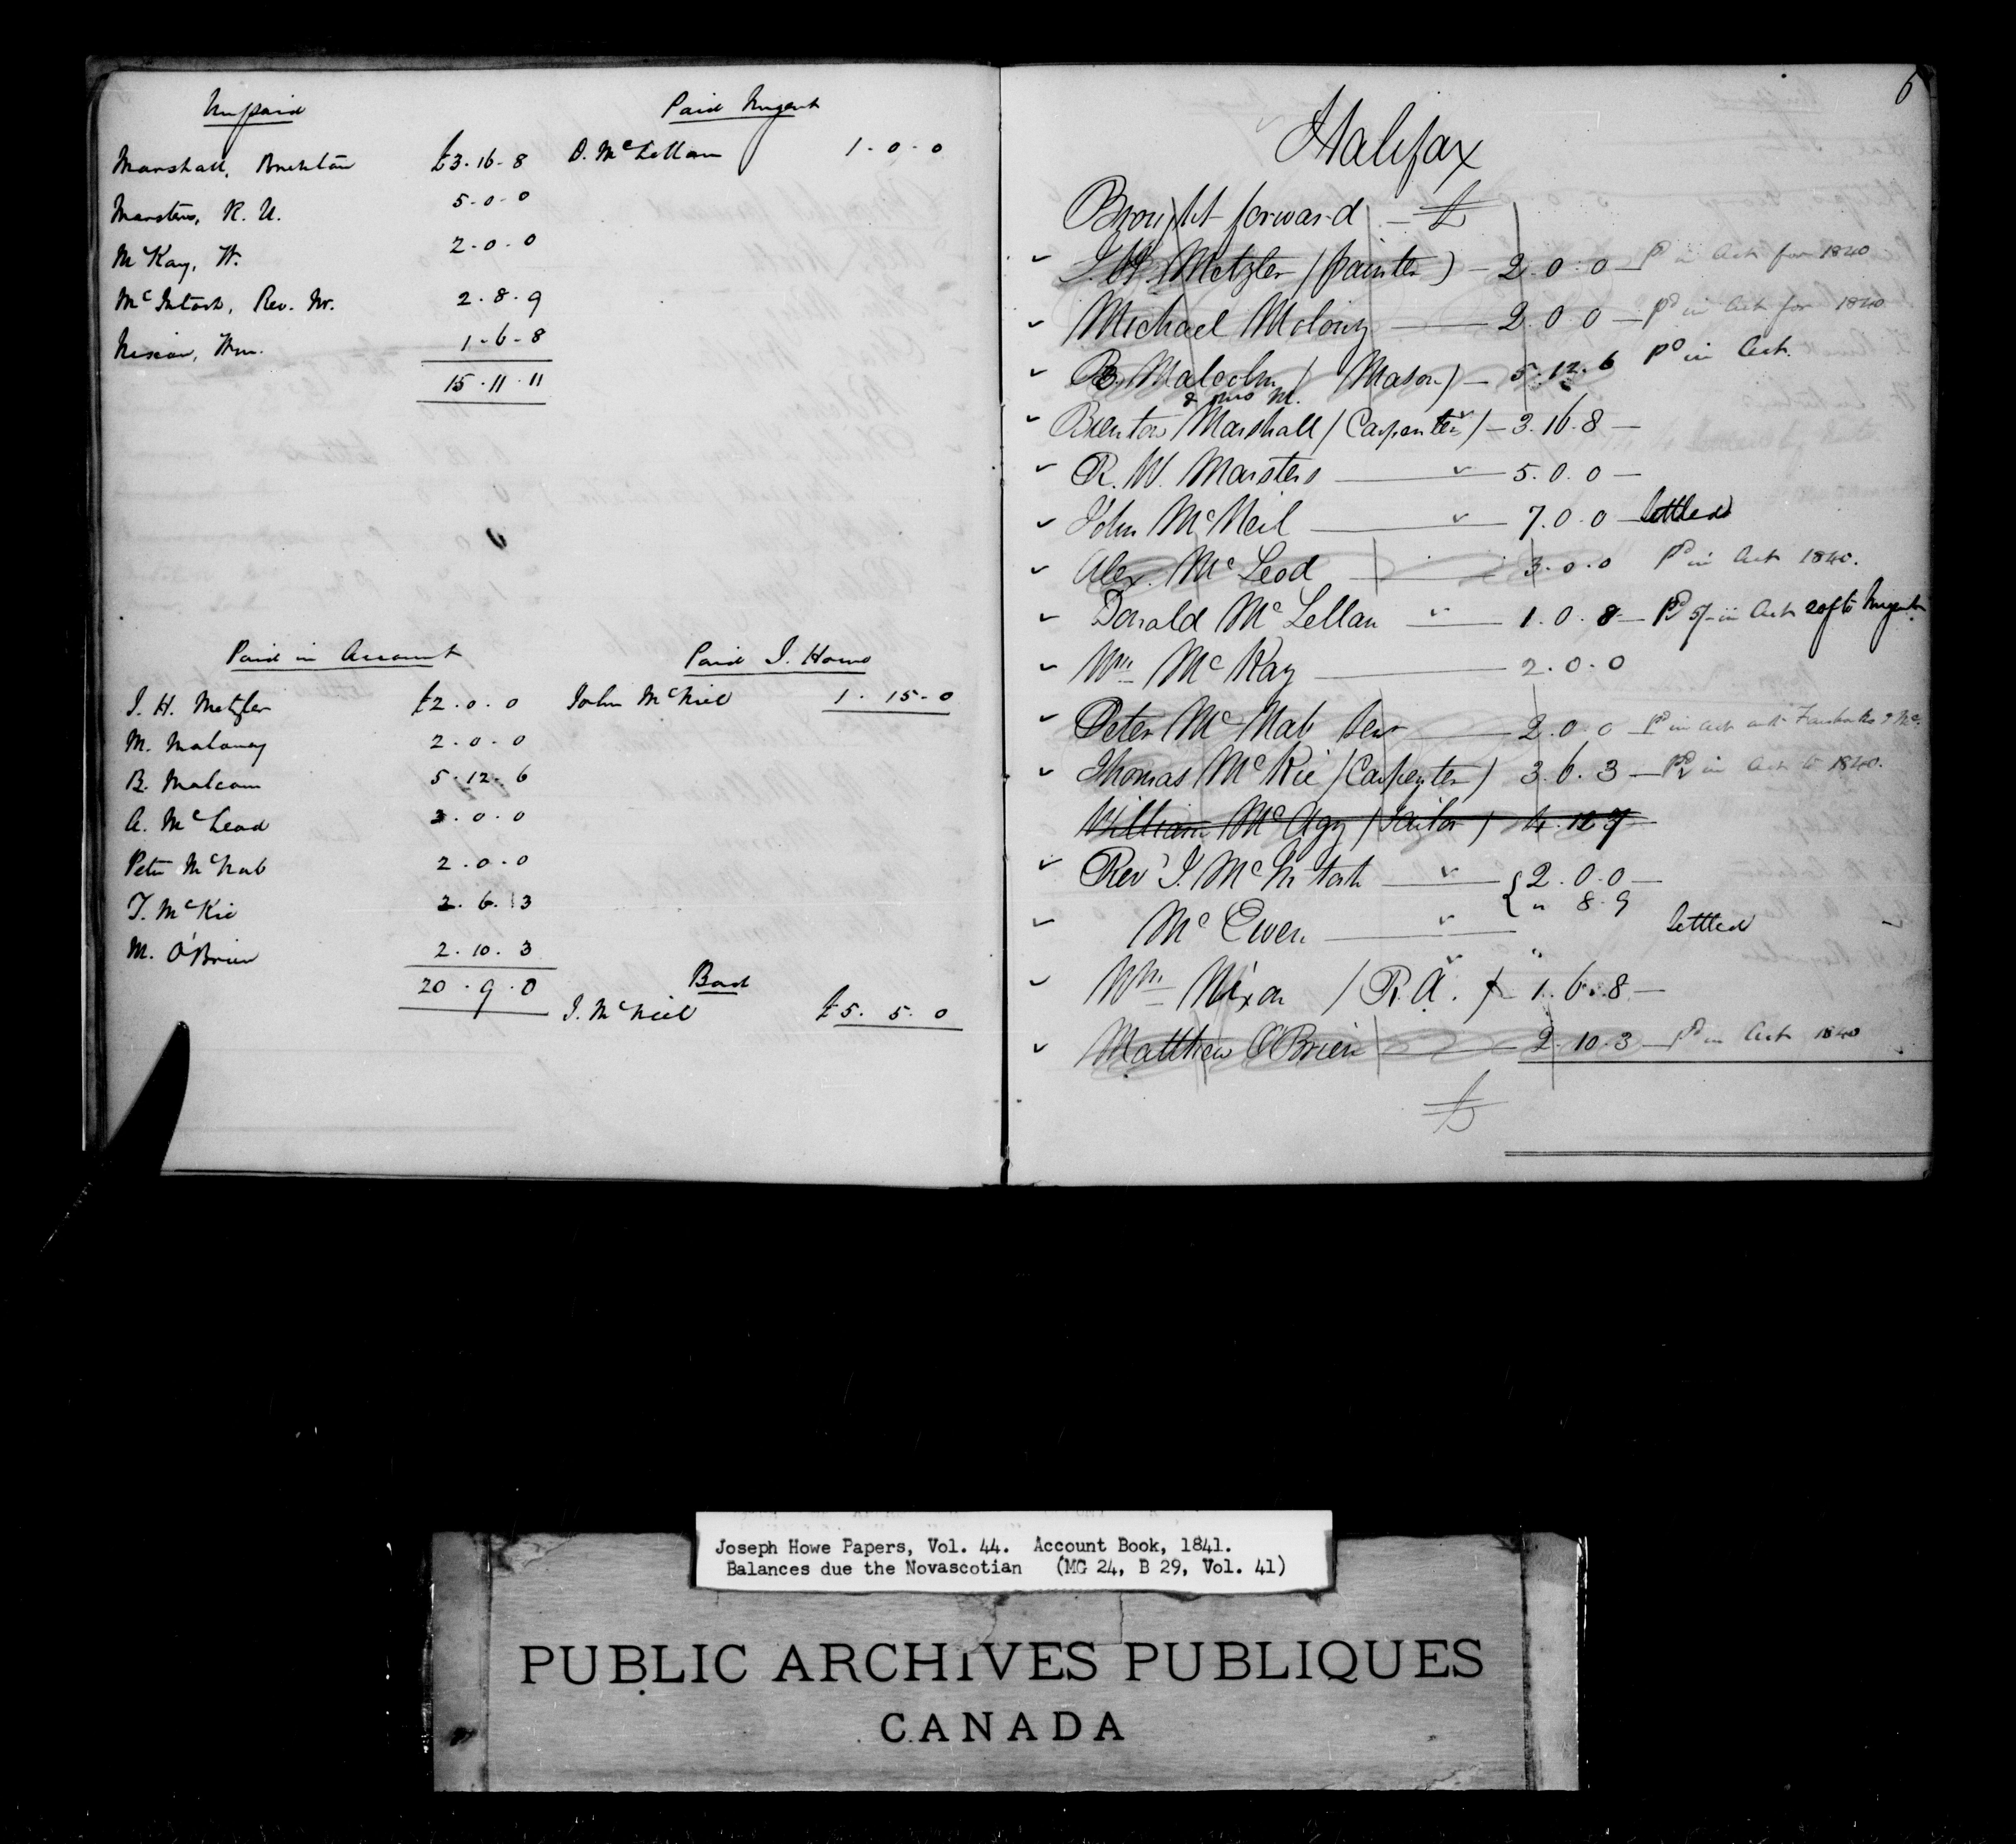 Unpaid
Marshall, Brenton £3-16-8
Marsters, R. W. 5-0-0
McKay, W. 2-0-0
McIntosh, Rev. Mr. 2-8-9
Nixon, Wm. 1-6-8
15-11-11
Paid Nugent
D. McLellan 1-0-0
Paid in Account
J. H. Metzler £2-0-0
M. Maloney 2-0-0
B. Malcom 5-12-6
A. McLeod 3-0-0
Peter McNab 2-0-0
T. McKie 3-6-3
M. O'Brien 2-10-3
20-9-0
Paid J. Howe
John McNiel 1-15-0
Bad
J. McNiel £5-5-0
6
Halifax
Brought forward - £
J. H. Metzler (painter) - 2.0.0 - Pd in Act for 1840
Michael Molony 2.0.0 - Pd in Act for 1840
B. Malcolm (Mason) - 5.12.6 Pd in Act.
Brenton Marshall (Carpenter) - 3.16.8 -
R. W. Marsters 5.0.0 -
John McNeil 7.0.0 - Settled
Alex. McLeod 3.0.0 Pd in Act 1840.
Donald McLellan 1.0.8 - Pd 5/- in Act 20/ to Nugent
Wm McKay 2.0.0
Peter McNab Senr 2.0.0 Pd in Act
Thomas McKie (Carpenter) 3.6.3 - Pd in Act to 1840.
William McAgy (Tailor) 4.12.7
Revd J. McIntosh { 2.0.0 -
" 8.9
McEwen " Settled
Wm Nixon (R.A.) - 1.6.8 -
Matthew O'Brien 2.10.3 - Pd in Act 1840
£
Joseph Howe Papers, Vol. 44. Account Book, 1841.
Balances due the Novascotian (MG 24, B 29, Vol. 41)
PUBLIC ARCHIVES PUBLIQUES
CANADA